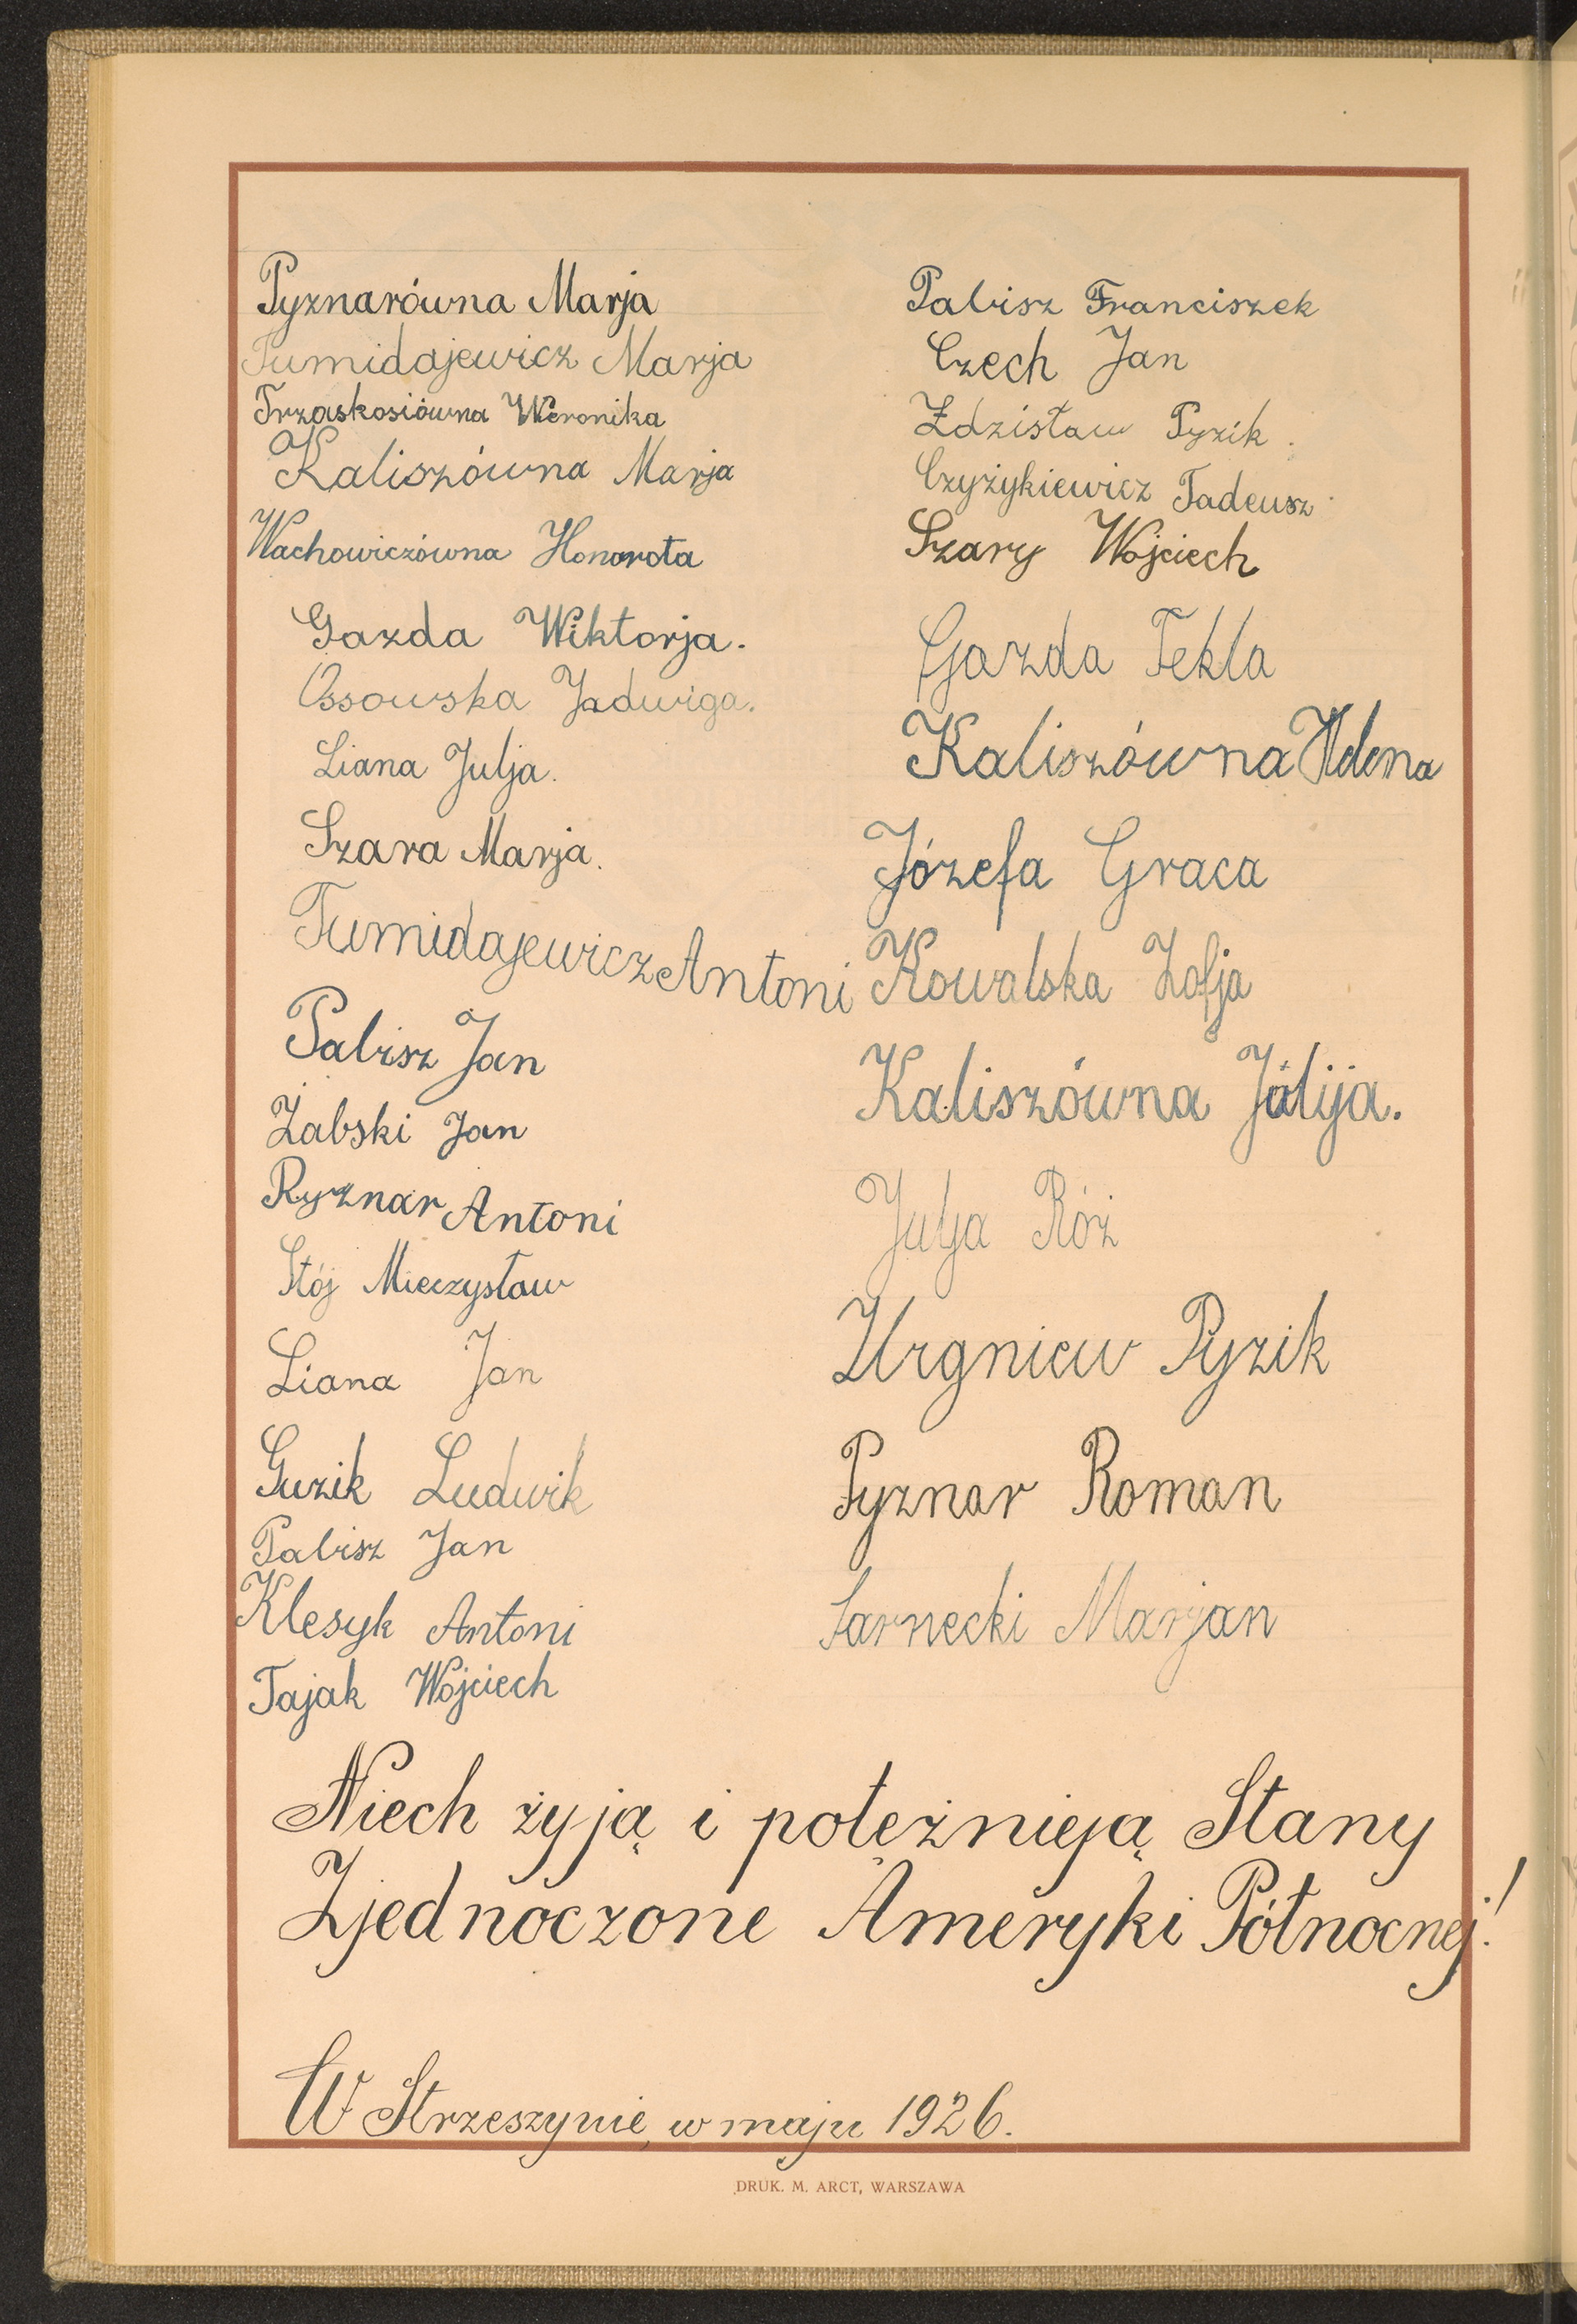 Pyznarówna Marja
Tumidajewicz Marja
Trzaskosiówna Weronika
Kaliszówna Marja
Wachowiczówna Honorota
Gazda Wiktorja.
Ossowska Jadwiga.
Liana Julja.
Szara Marja.
Tumidajewicz Antoni
Pabisz Jan
Żabski Jan
Ryznar Antoni
Stój Mieczysław
Liana Jan
Guzik Ludwik
Pabisz Jan
Klesyk Antoni
Tajak Wojciech
Pabisz Franciszek
Czech Jan
Zdzisław Pyzik.
Czyżykiewicz Tadeusz
Szary Wojciech
Gazda Tekla
Kaliszówna Helena
Józefa Graca
Kowalska Zofja
Kaliszówna Julija.
Julja Róż
Pyzik
Pyznar Roman
Sarnecki Marjan
Niech żyją i potężnieją Stany
Zjednoczone Ameryki Północnej!
W Strzeszynie, w maju 1926.
DRUK. M. ARCT, WARSZAWA